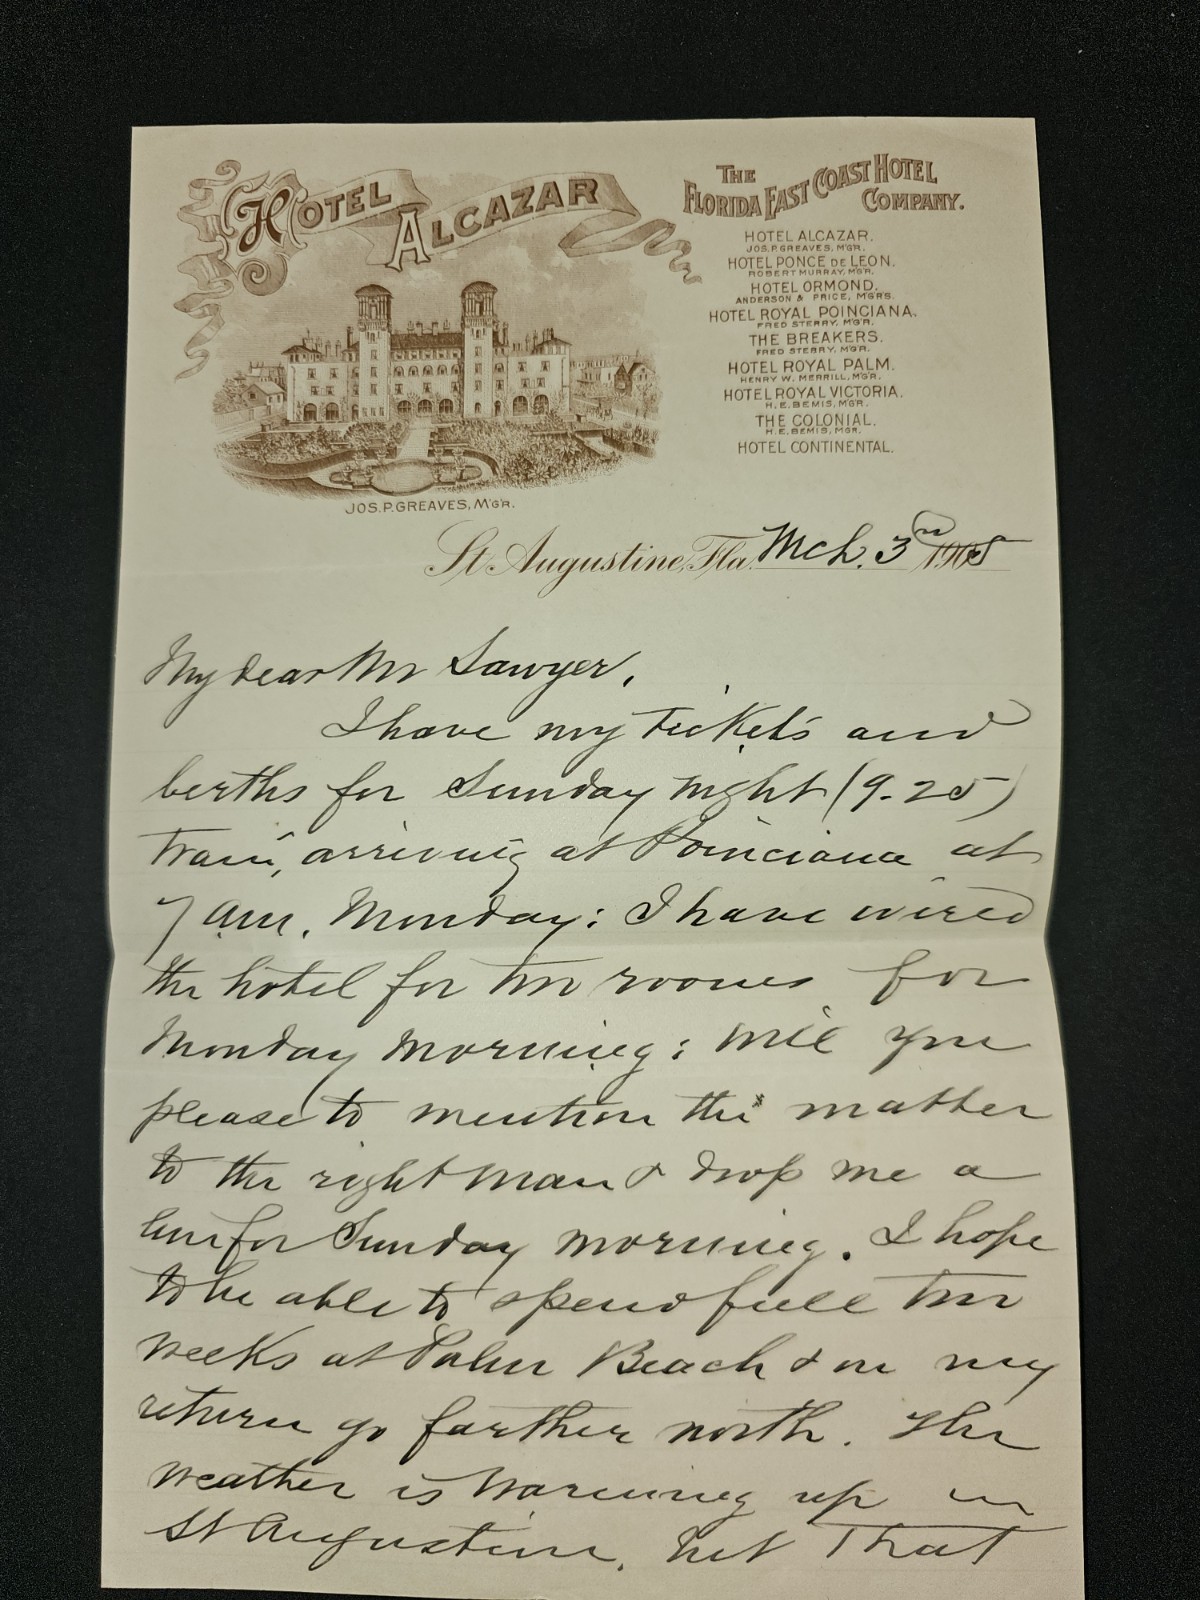 HOTEL ALCAZAR
JOS. P. GREAVES, M'G'R.
THE
FLORIDA EAST COAST HOTEL
COMPANY.
HOTEL ALCAZAR.
JOS. P. GREAVES, M'G'R.
HOTEL PONCE DE LEON.
ROBERT MURRAY, M'G'R.
HOTEL ORMOND.
ANDERSON & PRICE, M'G'R'S.
HOTEL ROYAL POINCIANA.
FRED STERRY, M'G'R.
THE BREAKERS.
FRED STERRY, M'G'R.
HOTEL ROYAL PALM.
HENRY W. MERRILL, M'G'R.
HOTEL ROYAL VICTORIA.
H. E. BEMIS, M'G'R.
THE COLONIAL.
H. E. BEMIS, M'G'R.
HOTEL CONTINENTAL.
St. Augustine, Fla. Mch. 3 1905
My dear Mr Sawyer,
I have my tickets and
berths for Sunday night (9-25)
train, arriving at Poinciana at
7 a.m. Monday: I have wired
the hotel for two rooms for
Monday morning: will you
please to mention the matter
to the right man & drop me a
line for Sunday morning. I hope
to be able to spend full two
weeks at Palm Beach & on my
return go farther north. The
weather is warming up in
St Augustine, but that